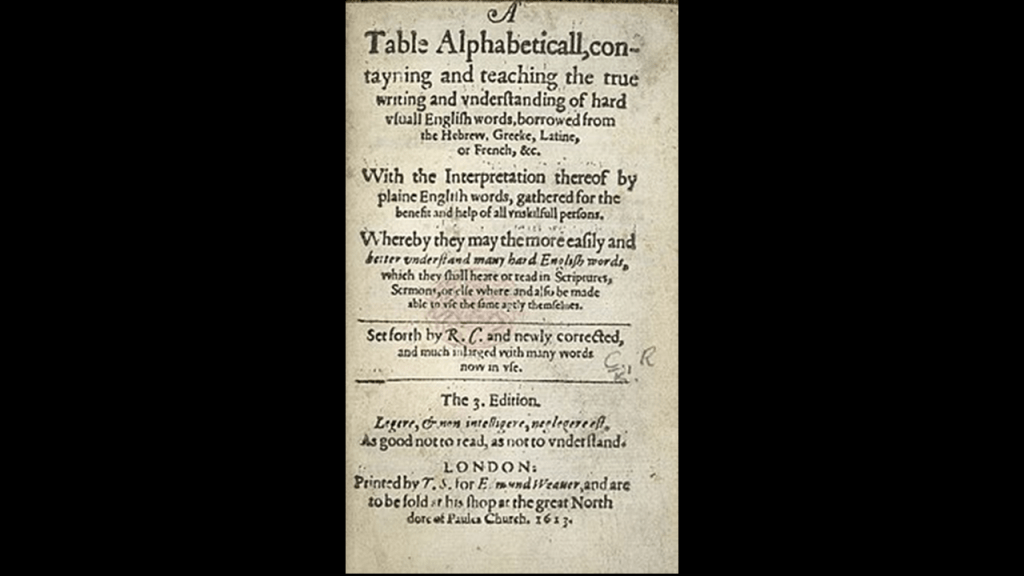 A
Table Alphabeticall, con-
tayning and teaching the true
writing and vnderſtanding of hard
vſuall Engliſh words, borrowed from
the Hebrew, Greeke, Latine,
or French, &c.
With the Interpretation thereof by
plaine Engliſh words, gathered for the
benefit and help of all vnskilfull perſons.
Whereby they may the more eaſily and
better vnderſtand many hard Engliſh words,
which they ſhall heare or read in Scriptures,
Sermons, or elſe where and alſo be made
able to vſe the ſame aptly themſelues.
Set forth by R. C. and newly corrected,
and much inlarged with many words
now in vſe.
C R
The 3. Edition.
Legere, & non intelligere, neglegere eſt.
As good not to read, as not to vnderſtand.
LONDON:
Printed by T. S. for Edmund Weauer, and are
to be ſold at his ſhop at the great North
dore of Paules Church. 1613.